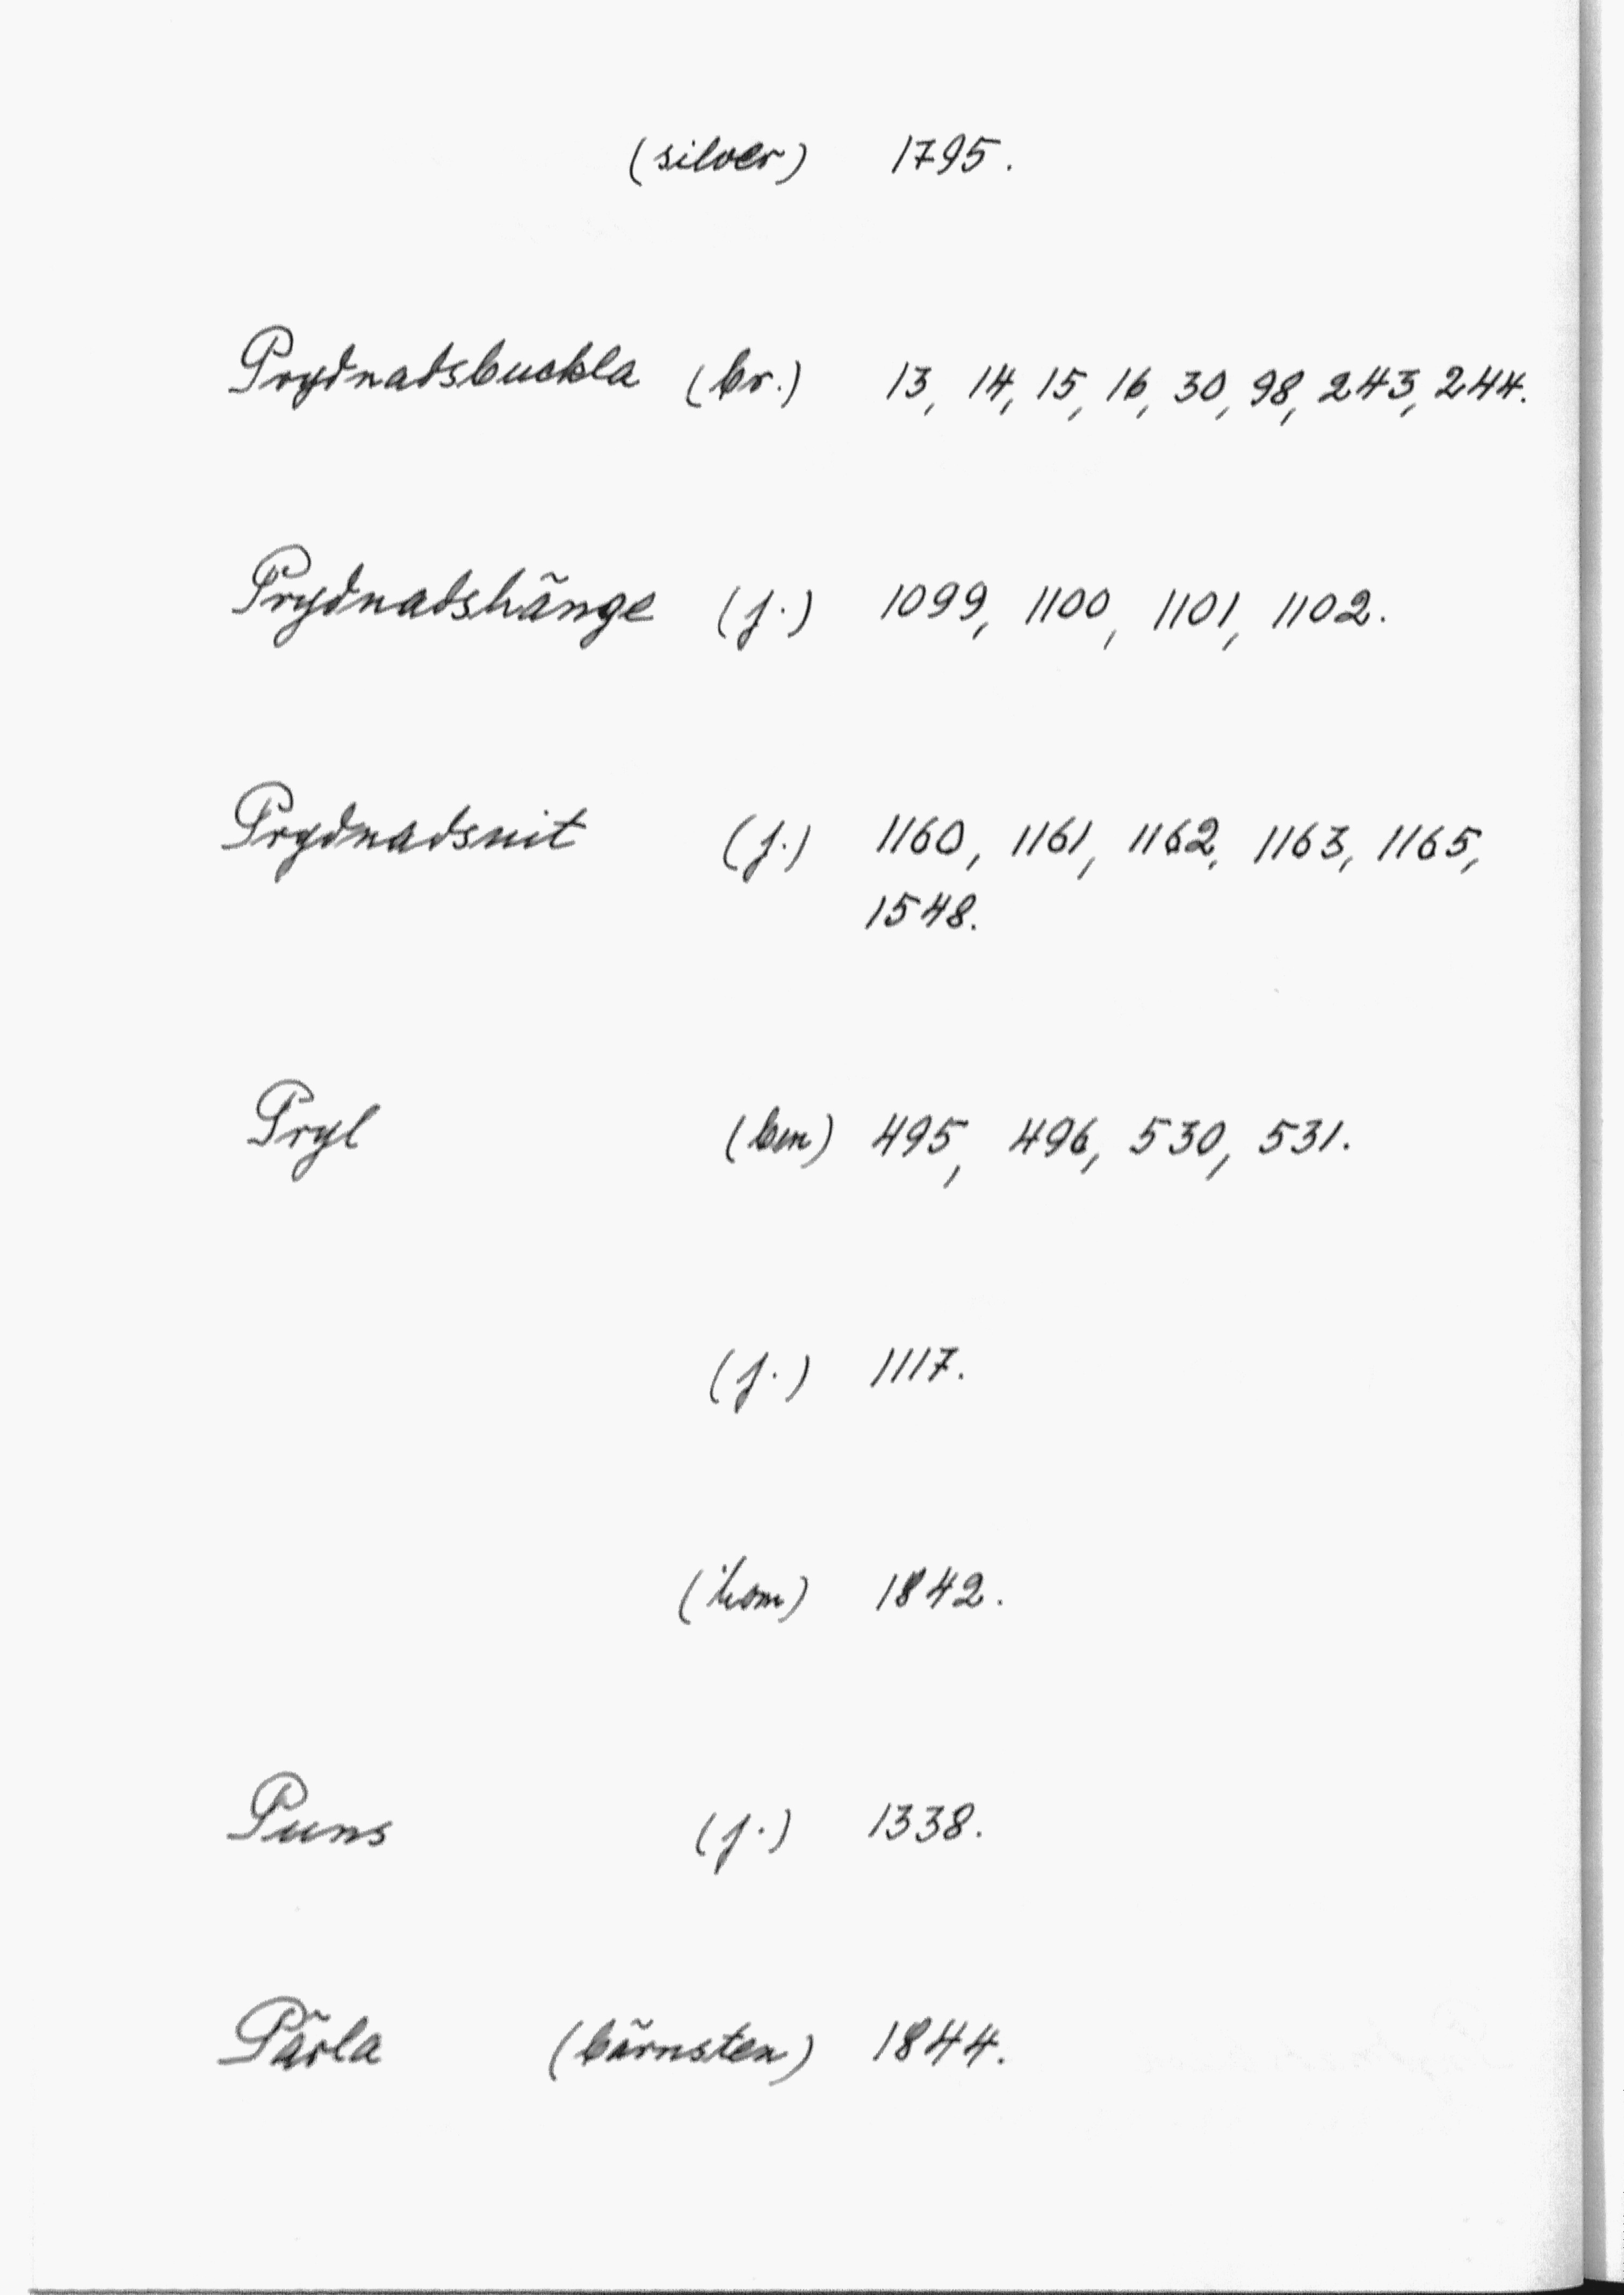 (silver) 1795.
Prydnadsbuckla (br.) 13, 14, 15, 16, 30, 98, 243, 244.
Prydnadshänge (j.) 1099, 1100, 1101, 1102.
Prydnadsnit (j.) 1160, 1161, 1162, 1163, 1165,
1548.
Pryl (ben) 495, 496, 530, 531.
(j.) 1117.
(horn) 1842.
Puns (j.) 1338.
Pärla (bärnsten) 1844.